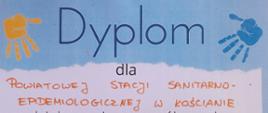 Dyplom
dla
POWIATOWEJ STACJI SANITARNO-
EPIDEMIOLOGICZNEJ W KOŚCIANIE